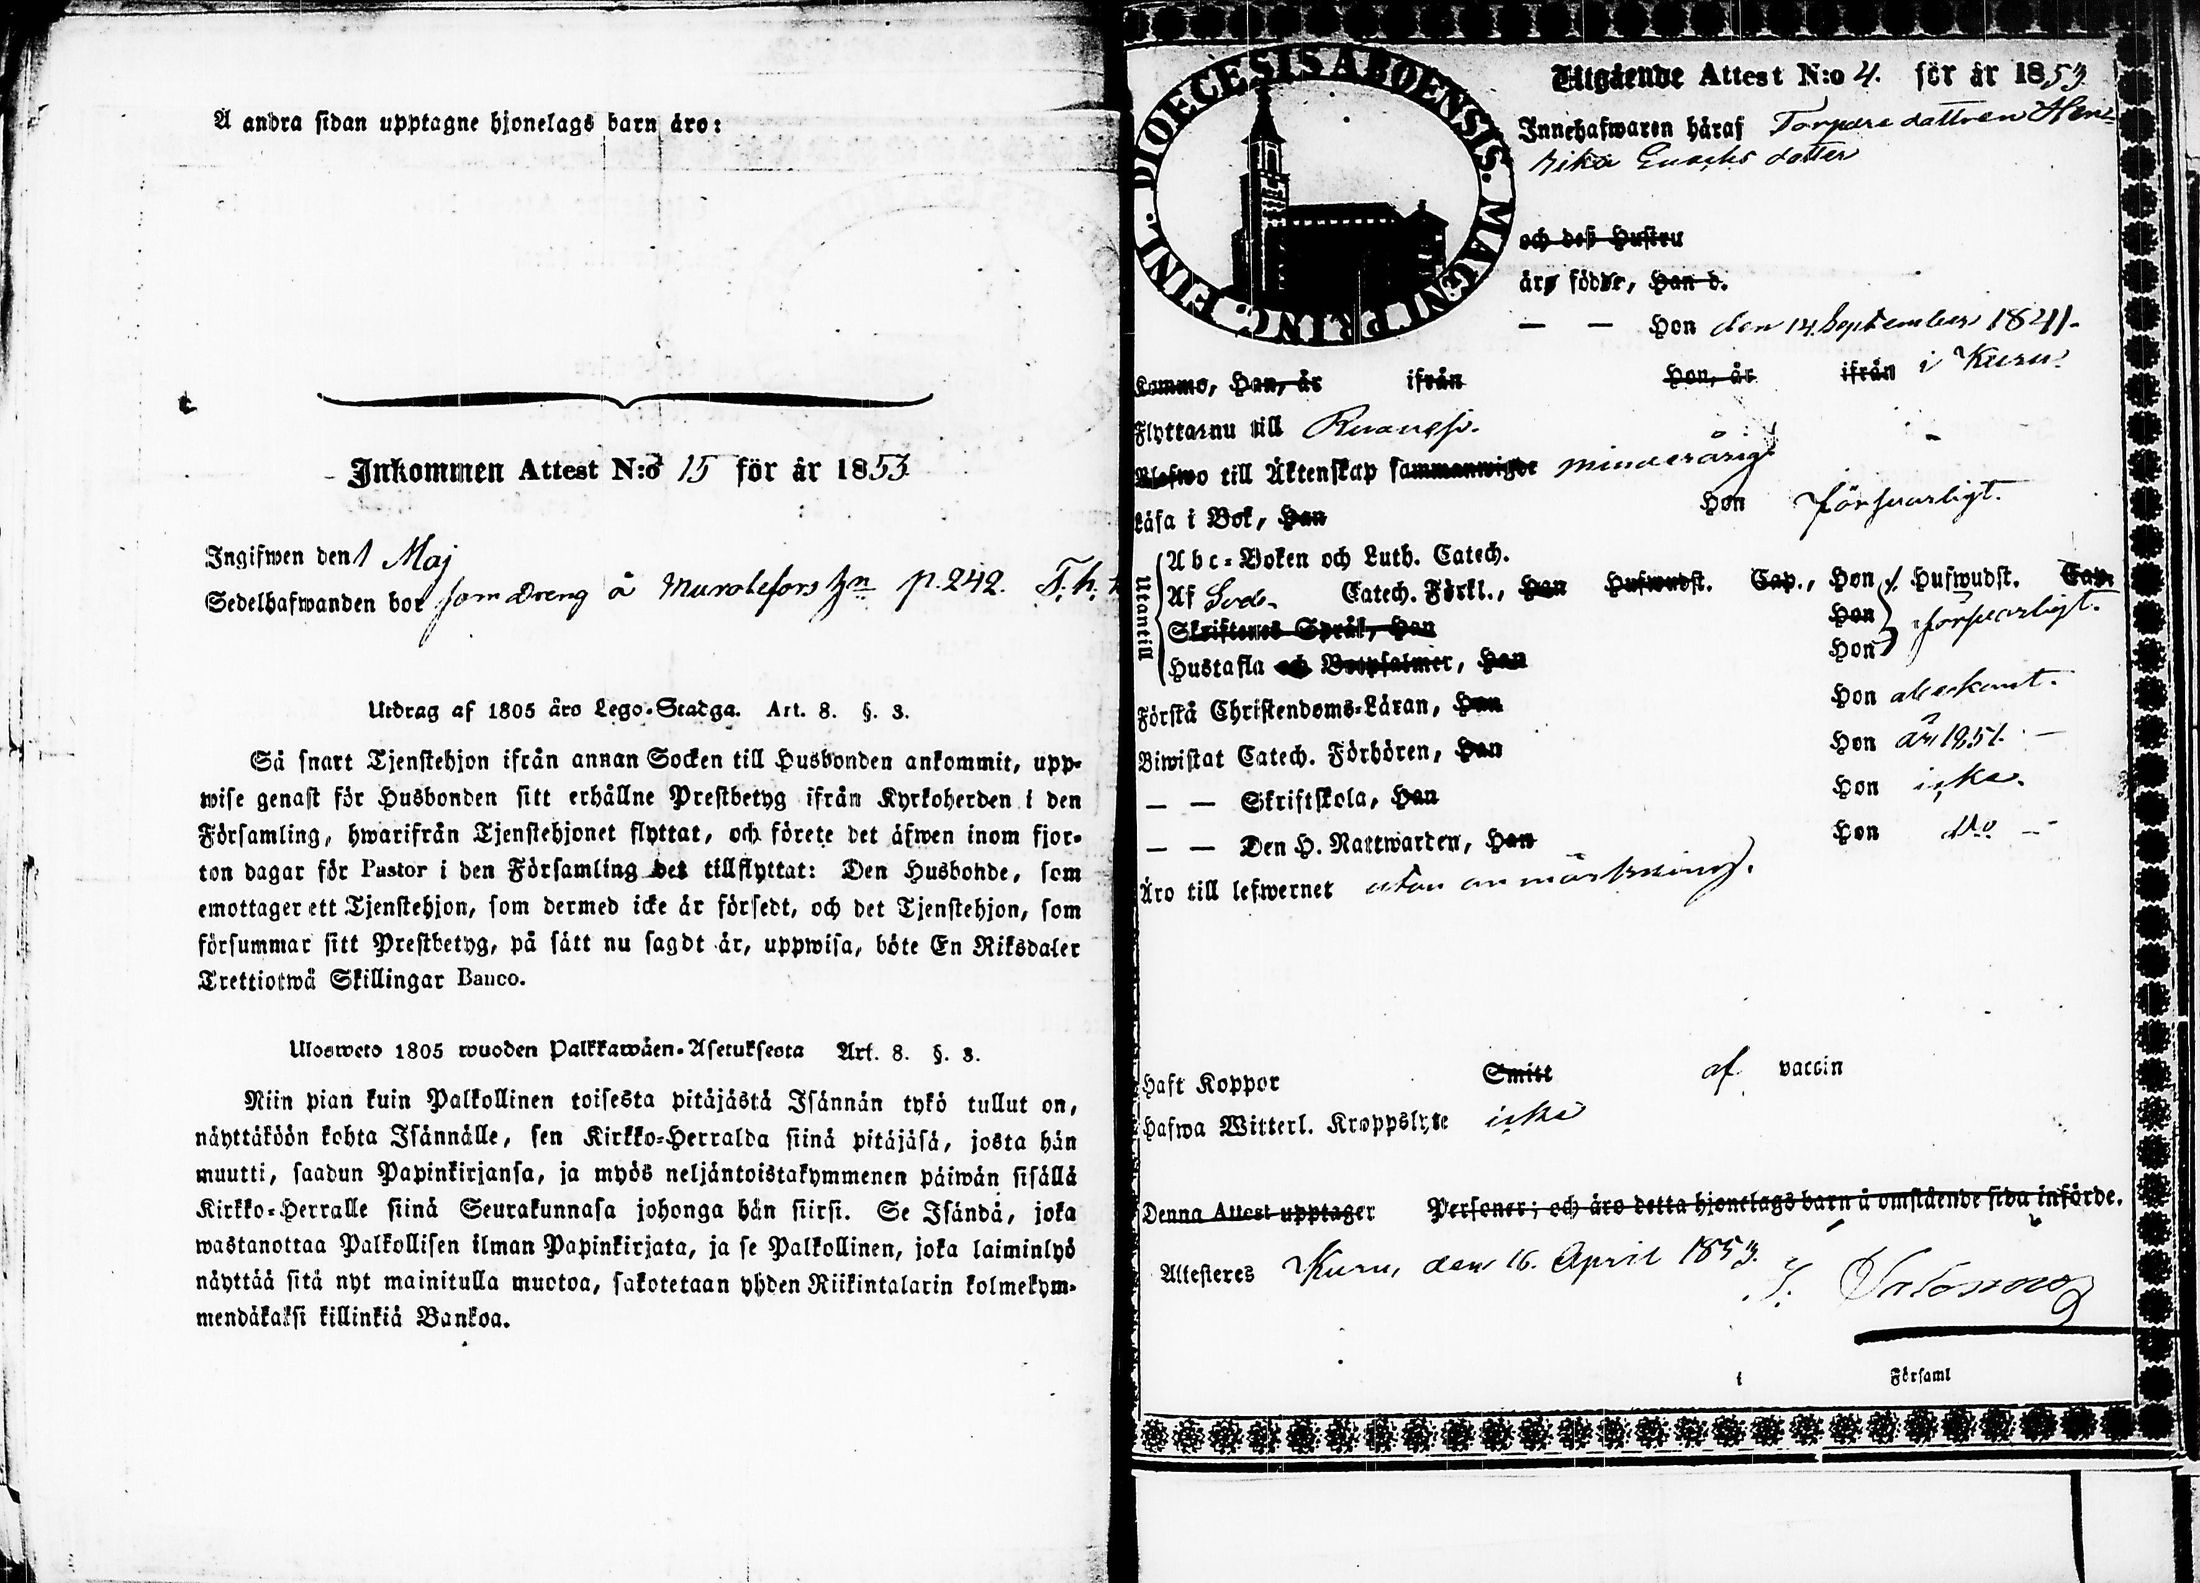 Å andra sidan upptagne hjonelags barn äro:
Inkommen Attest N:o 15 för år 1853
Ingifwen den 1 Maj
Sedelhafwanden bor som dreng å Murolefors p. 242.
Utdrag af 1805 års Lego-Stadga. Art. 8. §. 3.
Så snart Tjenstehjon ifrån annan Socken till Husbonden ankommit, upp-
wise genast för Husbonden sitt erhållne Prestbetyg ifrån Kyrkoherden i den
Församling, hwarifrån Tjenstehjonet flyttat, och förete det äfwen inom fjor-
ton dagar för Pastor i den Församling det tillflyttat: Den Husbonde, som
emottager ett Tjenstehjon, som dermed icke är försedt, och det Tjenstehjon, som
försummar sitt Prestbetyg, på sätt nu sagdt är, uppwisa, böte En Riksdaler
Trettiotwå Skillingar Banco.
Uloswето 1805 wuoden Palkkawäen-Asetuksesta Art. 8. §. 3.
Niin pian kuin Palkollinen toisesta pitäjästä Isännän tykö tullut on,
näyttäköön kohta Isännälle, sen Kirkko-Herralda siinä pitäjäsä, josta hän
muutti, saadun Papinkirjansa, ja myös neljäntoistakymmenen päiwän sisällä
Kirkko-Herralle siinä Seurakunnasa johonga hän siirsi. Se Isändä, joka
wastanottaa Palkollisen ilman Papinkirjata, ja se Palkollinen, joka laiminlyö
näyttää sitä nyt mainitulla muotoa, sakotetaan yhden Riikintalarin kolmekym-
mendäkaksi killinkiä Bankoa.
DIOECESIS ABOENSIS. MAGNI PRINC. FINL.
Utgående Attest N:o 4. för år 1853
Innehafwaren häraf Torpare dottren Hen-
rika Enochs dotter
och deß Hustru
äro födde, Han d.
— — Hon den 14 September 1841.
Kommo, Han, år ifrån Hon, år ifrån i Kuru.
Flytta nu till Ruovesi.
Blefwo till Äktenskap sammanwigde minderårig.
Läsa i Bok, Han Hon försvarligt.
Utantill
Abc-Boken och Luth. Catech.
Af Catech. Förkl., Han Hufwudst. Cap., Hon Hufwudst. Cap.
Skriftenes Språk, Han Hon försvarligt.
Hustafla och Botpsalmer, Han Hon
Förstå Christendoms-Läran, Han Hon
Biwistat Catech. Förhören, Han Hon år 1851. —
— — Skriftskola, Han Hon icke.
— — Den H. Nattwarden, Han Hon d:o —
Äro till lefwernet utan anmärkning.
Haft Koppor Smitt af vaccin
Hafwa Witterl. Kroppslyte icke
Denna Attest upptager Personer; och äro detta hjonelags barn å omstående sida införde.
Attesteres Kuru, den 16. April 1853.
i Församl